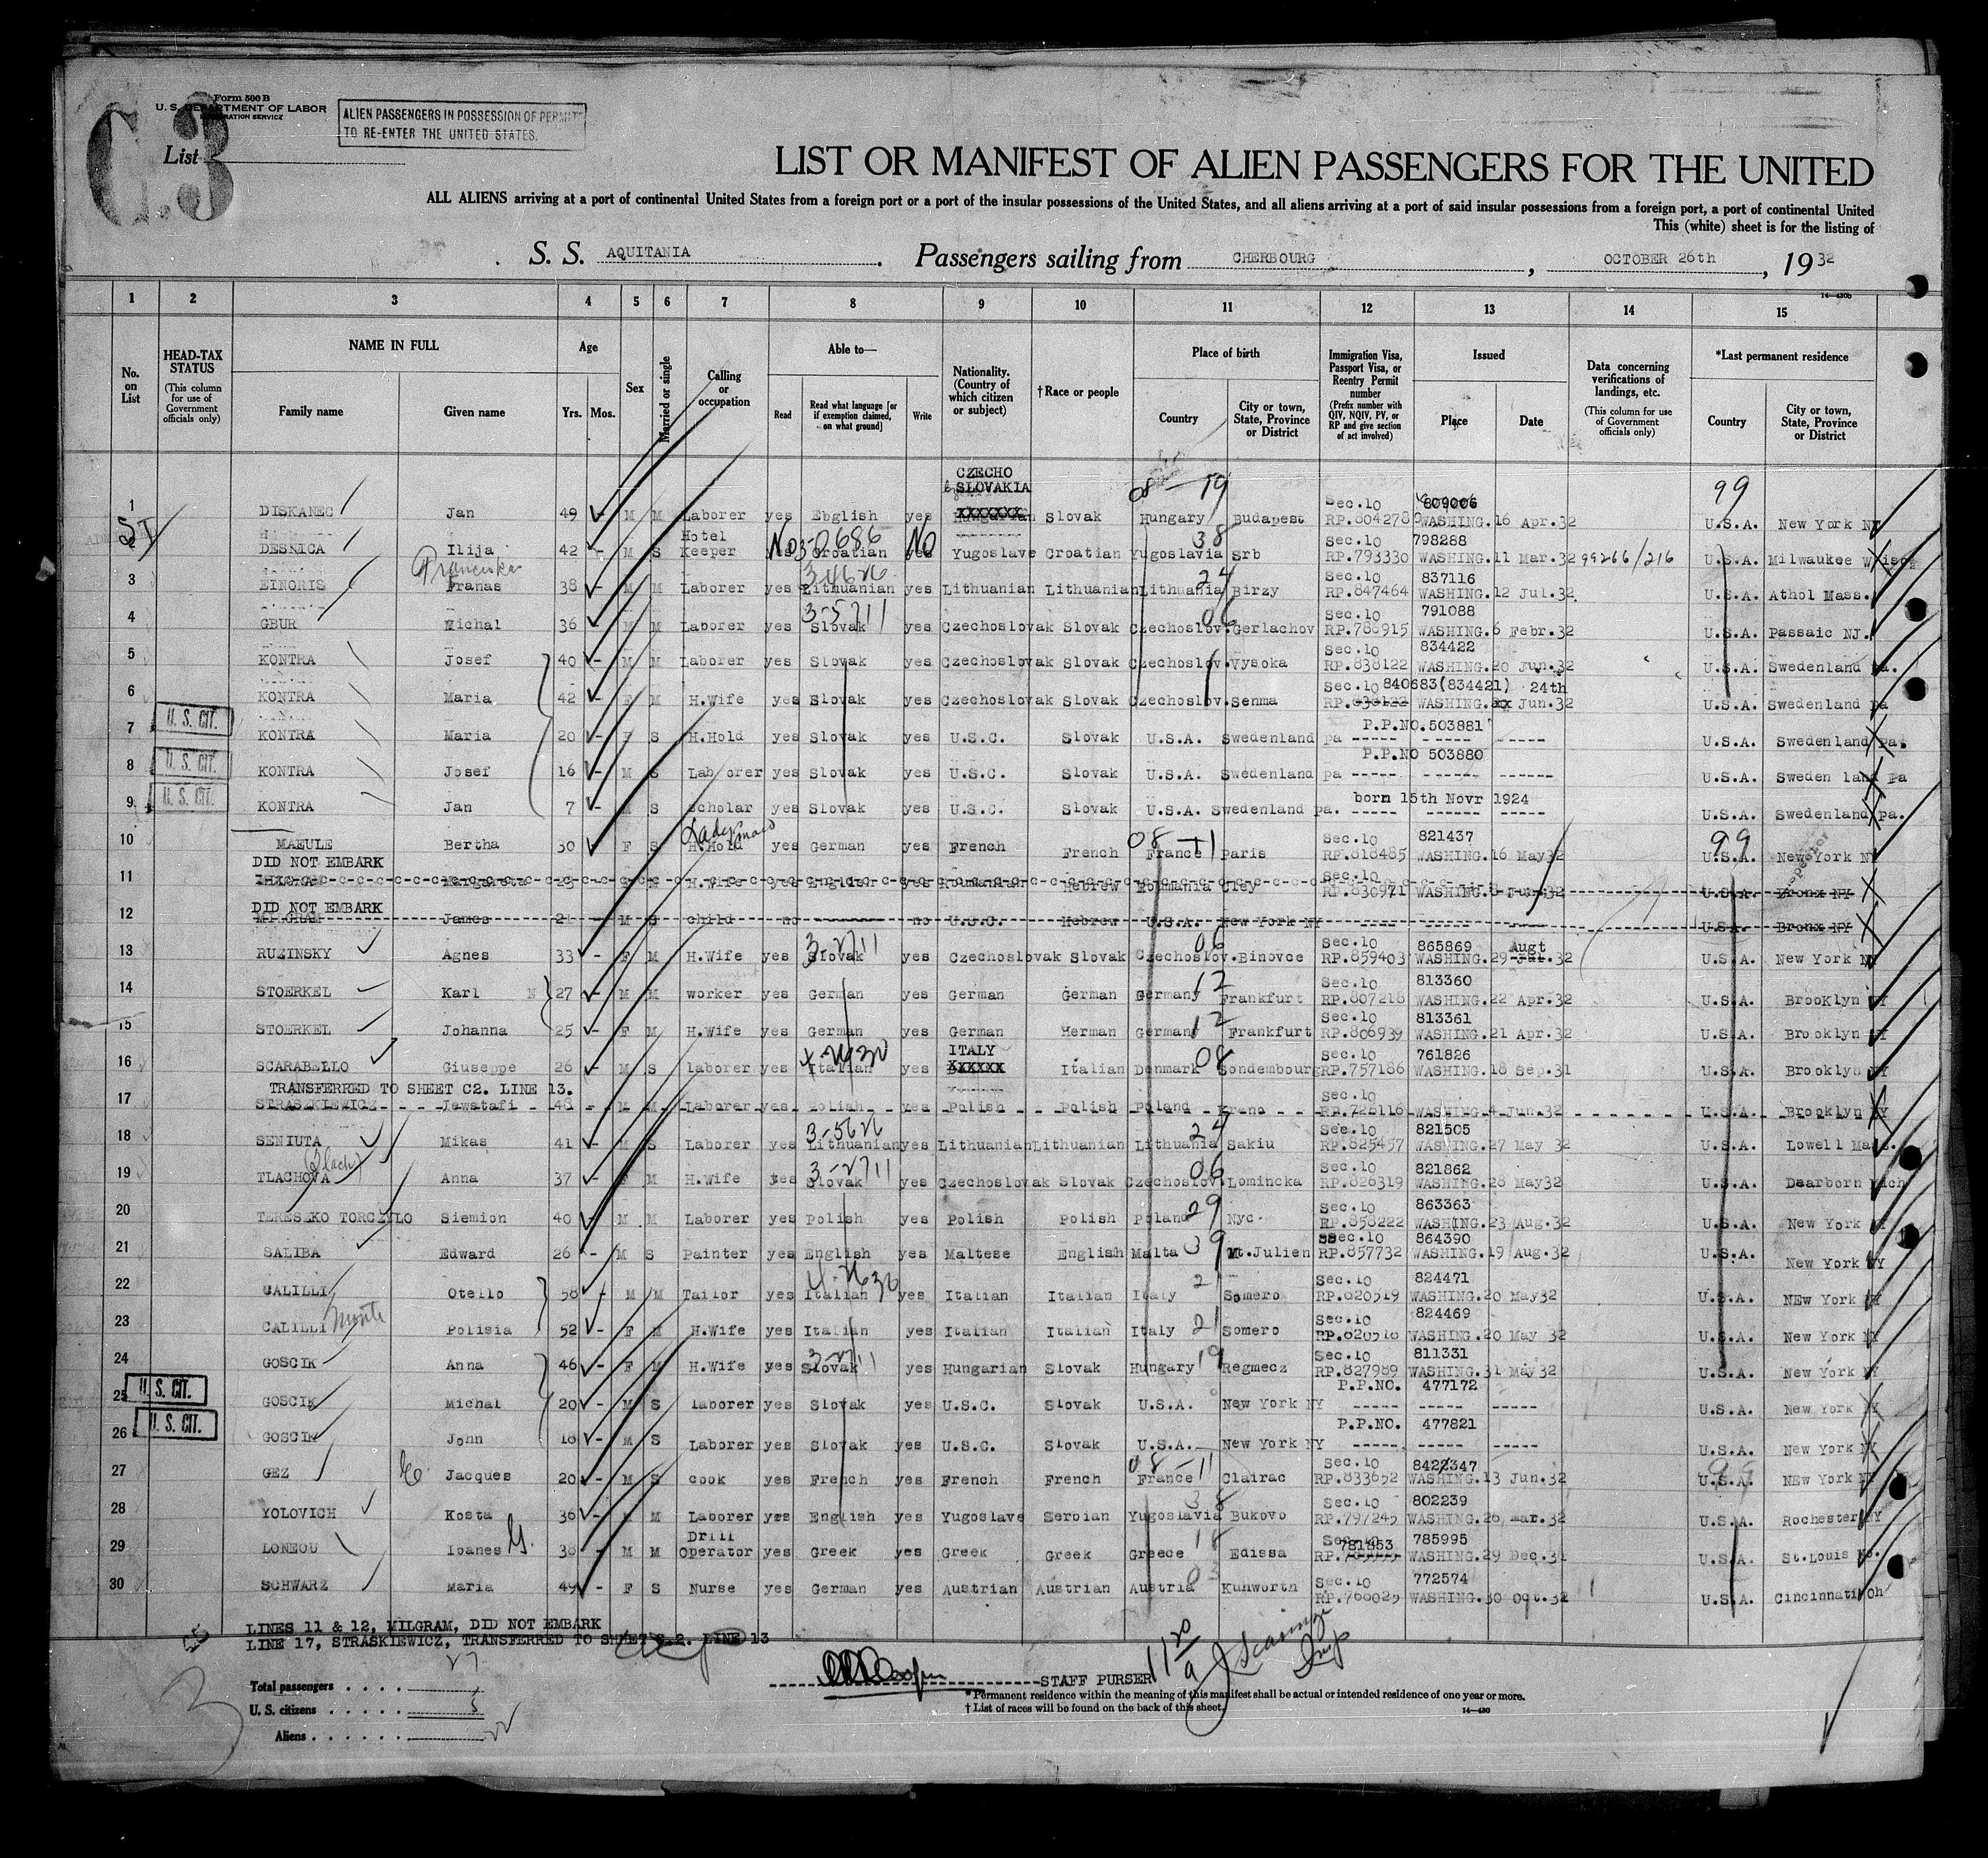 Form 500 B
U. S. DEPARTMENT OF LABOR
IMMIGRATION SERVICE
ALIEN PASSENGERS IN POSSESSION OF PERMIT
TO RE-ENTER THE UNITED STATES.
C.3
List
LIST OR MANIFEST OF ALIEN PASSENGERS FOR THE UNITED
ALL ALIENS arriving at a port of continental United States from a foreign port or a port of the insular possessions of the United States, and all aliens arriving at a port of said insular possessions from a foreign port, a port of continental United
This (white) sheet is for the listing of
S. S. AQUITANIA. Passengers sailing from CHERBOURG, OCTOBER 26th, 19 32
14—430b
1 2 3 4 5 6 7 8 9 10 11 12 13 14 15
No. on List
HEAD-TAX STATUS (This column for use of Government officials only)
NAME IN FULL Family name Given name
Age Yrs. Mos.
Sex
Married or single
Calling or occupation
Able to— Read Read what language [or if exemption claimed, on what ground] Write
Nationality. (Country of which citizen or subject)
† Race or people
Place of birth Country City or town, State, Province or District
Immigration Visa, Passport Visa, or Reentry Permit number (Prefix number with QIV, NQIV, PV, or RP and give section of act involved)
Issued Place Date
Data concerning verifications of landings, etc. (This column for use of Government officials only)
*Last permanent residence Country City or town, State, Province or District
CZECHO
SLOVAKIA 08 — 19 99
1 DISKANEC Jan 49 - M M Laborer yes Ebglish yes XXXXXXX Slovak Hungary Budapest Sec.10 RP.804278 809006 WASHING.16 Apr.32 U.S.A. New York NY
2 DESNICA Ilija 42 - M S Hotel Keeper No 3-0686 Croatian No Yugoslave Croatian Yugoslavia 38 Srb Sec.10 RP.793330 798288 WASHING.11 Mar.32 99266/216 U.S.A. Milwaukee Wisc
Franciska
3 EINORIS Franas 38 - M M Laborer yes Lithuanian yes Lithuanian Lithuanian Lithuania 24 Birzy Sec.10 RP.847464 837116 WASHING.12 Jul.32 U.S.A. Athol Mass.
4 GBUR Michal 36 - M M Laborer yes 3-5711 Slovak yes Czechoslovak Slovak Czechoslov. 06 Gerlachov Sec.10 RP.786915 791088 WASHING.6 Febr.32 U.S.A. Passaic NJ.
5 KONTRA Josef 40 - M M Laborer yes Slovak yes Czechoslovak Slovak Czechoslov. Vysoka Sec.10 RP.838122 834422 WASHING.20 Jun.32 U.S.A. Swedenland Pa.
6 KONTRA Maria 42 - F M H.Wife yes Slovak yes Czechoslovak Slovak Czechoslov. Senma Sec.10 840683(834421) 24th RP.838122 WASHING.xx Jun.32 U.S.A. Swedenland Pa
U. S. CIT.
7 KONTRA Maria 20 - F S H.Hold yes Slovak yes U.S.C. Slovak U.S.A. Swedenland pa P.P.NO.503881 U.S.A. Swedenland Pa.
U. S. CIT.
8 KONTRA Josef 16 - M S Laborer yes Slovak yes U.S.C. Slovak U.S.A. Swedenland pa P.P.NO 503880 U.S.A. Sweden land Pa
U. S. CIT.
9 KONTRA Jan 7 - M S Scholar yes Slovak yes U.S.C. Slovak U.S.A. Swedenland pa. born 15th Novr 1924 U.S.A. Swedenland pa.
10 MAEULE Bertha 30 F S Ladys maid H.Hold yes German yes French French 08 — 11 France Paris Sec.10 RP.818485 821437 WASHING.16 May32 99 U.S.A. New York NY
DID NOT EMBARK
11 Margareta H.Wife yes English yes Roumanian Hebrew Roumania Sec.10 RP.830971 WASHING.8 Jun.32 U.S.A. Bronx NY
DID NOT EMBARK
12 MILGRAM James 21 - M S child no no U.S.C. Hebrew U.S.A. New York NY U.S.A. Bronx NY
13 RUZINSKY Agnes 33 - F M H.Wife yes 3-2711 Slovak yes Czechoslovak Slovak Czechoslov. 06 Binovce Sec.10 RP.859403 865869 WASHING.29 Augt 32 U.S.A. New York NY
14 STOERKEL Karl N 27 - M M worker yes German yes German German Germany 12 Frankfurt Sec.10 RP.807218 813360 WASHING.22 Apr.32 U.S.A. Brooklyn NY
15 STOERKEL Johanna 25 - F M H.Wife yes German yes German Herman Germany 12 Frankfurt Sec.10 RP.806939 813361 WASHING.21 Apr.32 U.S.A. Brooklyn NY
16 SCARABELLO Giuseppe 26 - M S laborer yes Italian yes ITALY XXXXXX Italian Denmark 08 Sondembourg Sec.10 RP.757186 761826 WASHING.18 Sep.31 U.S.A. Brooklyn NY
TRANSFERRED TO SHEET C2. LINE 13.
17 STRASZKIEWICZ Jewstafi 48 - M M Laborer yes Polish yes Polish Polish Poland Sec.10 WASHING.4 Jun.32 U.S.A. Brooklyn NY
18 SENIUTA Mikas 41 - M S Laborer yes 3-5626 Lithuanian yes Lithuanian Lithuanian Lithuania 24 Sakiu Sec.10 RP.825457 821505 WASHING.27 May 32 U.S.A. Lowell Mass.
19 TLACHOVA Anna 37 - F M H.Wife yes 3-2711 Slovak yes Czechoslovak Slovak Czechoslov. 06 Lomincka Sec.10 RP.826319 821862 WASHING.28 May32 U.S.A. Dearborn Mich
20 TERESZKO TORCZYLO Siemion 40 - M M Laborer yes Polish yes Polish Polish Poland 29 Nyc. Sec.10 RP.858222 863363 WASHING.23 Aug.32 U.S.A. New York NY
21 SALIBA Edward 26 - M S Painter yes English yes Maltese English Malta 39 Mt.Julien Sec.10 RP.857732 864390 WASHING.19 Aug.32 U.S.A. New York NY
22 CALILLI Otello 58 - M M Tailor yes Italian yes Italian Italian Italy 21 Somero Sec.10 RP.820519 824471 WASHING.20 May32 U.S.A. NEw York NY
23 CALILLI Polisia 52 - F M H.Wife yes Italian yes Italian Italian Italy 21 Somero Sec.10 RP.820518 824469 WASHING.20 May 32 U.S.A. New York NY
24 GOSCIK Anna 46 - F M H.Wife yes 3-2711 Slovak yes Hungarian Slovak Hungary 19 Regmecz Sec.10 RP.827989 811331 WASHING.31 May32 U.S.A. New York NY
U. S. CIT.
25 GOSCIK Michal 20 - M S laborer yes Slovak yes U.S.C. Slovak U.S.A. New York NY P.P.NO. 477172 U.S.A. New York NY
U. S. CIT.
26 GOSCIK John 18 - M S Laborer yes Slovak yes U.S.C. Slovak U.S.A. New York NY P.P.NO. 477821 U.S.A. New York NY
27 GEZ Jacques 20 - M S cook yes French yes French French 08 — 11 France Clairac Sec.10 RP.833652 WASHING.13 Jun.32 U.S.A. NEw York NY
28 YOLOVICH Kosta 36 - M M Laborer yes English yes Yugoslave Serbian Yugoslavia 38 Bukovo Sec.10 RP.797245 802239 WASHING.26 mar.32 U.S.A. Rochester NY
29 LONEOU Ioanes G. 38 - M M Drill Operator yes Greek yes Greek Greek Greece 18 Edissa Sec.10 781853 785995 WASHING.29 Dec.31 U.S.A. St.Louis Mo.
30 SCHWARZ Maria 49 - F S Nurse yes German yes Austrian Austrian Austria 03 Kuhworth Sec.10 RP.766025 772574 WASHING.30 Oct.32 U.S.A. Cincinnati Oh
LINES 11 & 12, MILGRAM, DID NOT EMBARK
LINE 17, STRASKIEWICZ, TRANSFERRED TO SHEET C.2. LINE 13
Total passengers . . . . 27
U. S. citizens . . . . . 5
Aliens . . . . . . 22
STAFF PURSER
* Permanent residence within the meaning of this manifest shall be actual or intended residence of one year or more.
† List of races will be found on the back of this sheet.
14—430